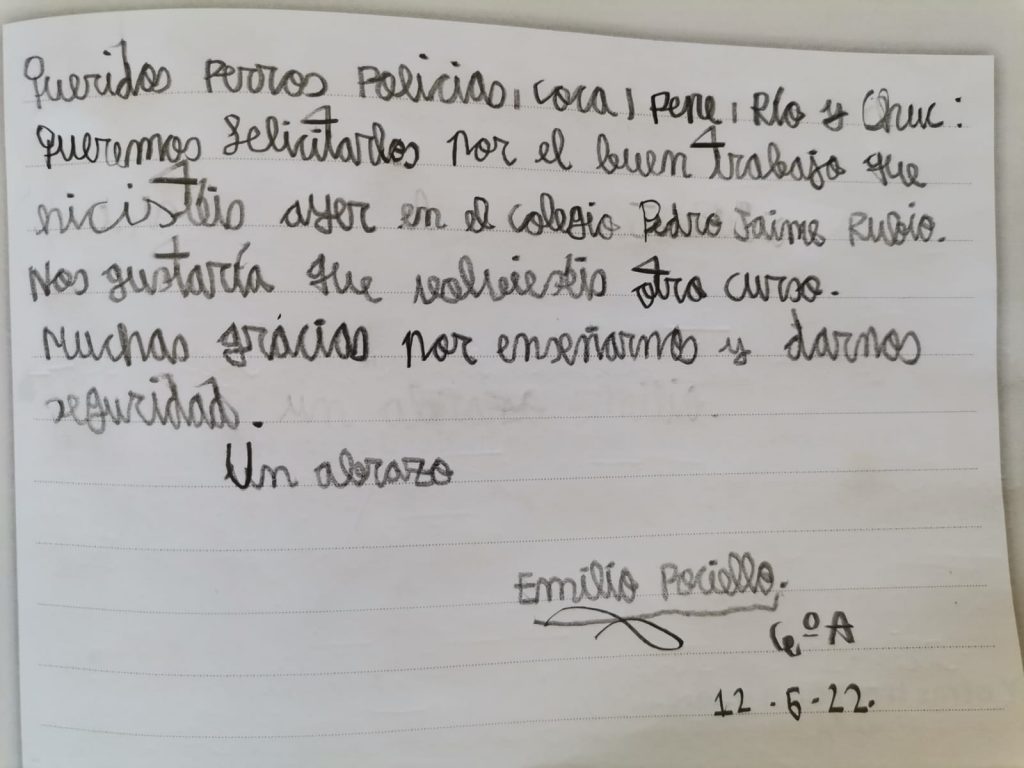 Queridos Perros Policias, Coca, Pene, Rlo y Chuc:
queremos felicitarlos por el buen trabajo que
hicistéis ayer en el colegio Pedro Jaime Rubio.
Nos gustaría que volvieстis otro curso.
Muchas grácias por enseñarnos y darnos
seguridad.
Un abrazo
Emilio Pociello.
6ºA
12 . 6 . 22.